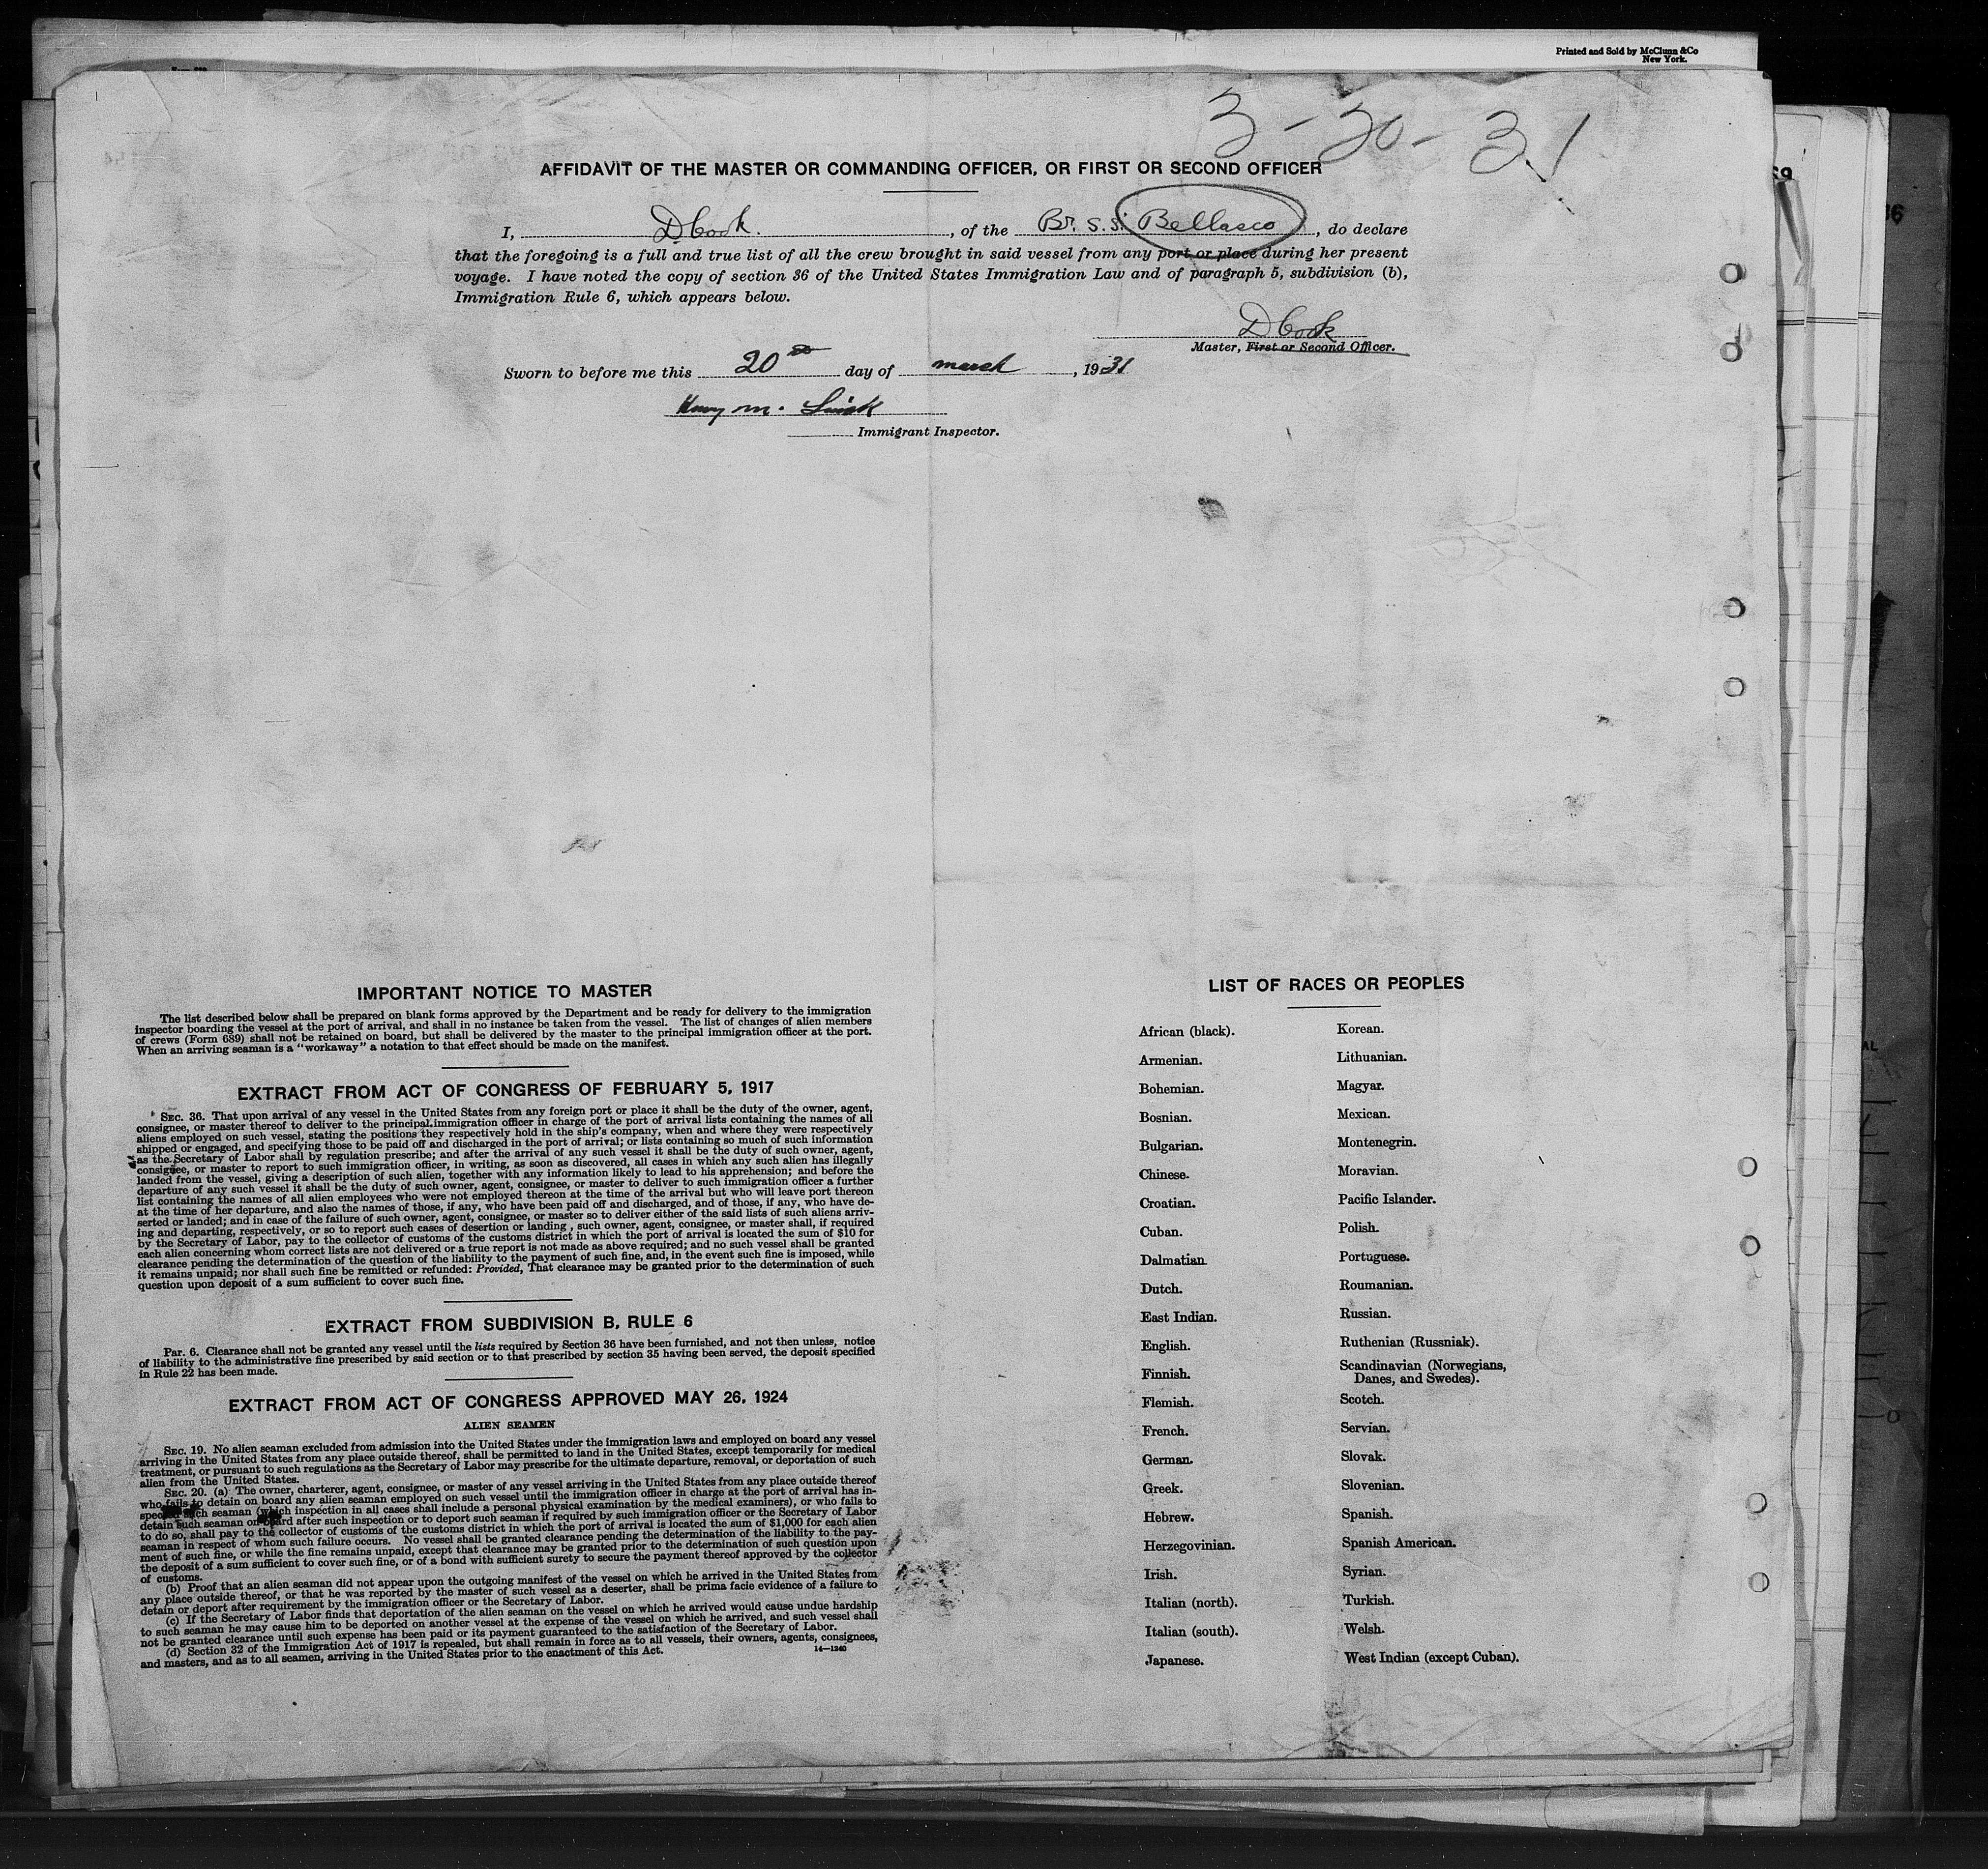 Printed and Sold by McClunn &Co
New York.
3-20-31
AFFIDAVIT OF THE MASTER OR COMMANDING OFFICER, OR FIRST OR SECOND OFFICER
I, D Cook., of the Br. S.S. Bellasco, do declare
that the foregoing is a full and true list of all the crew brought in said vessel from any port or place during her present
voyage. I have noted the copy of section 36 of the United States Immigration Law and of paragraph 5, subdivision (b),
Immigration Rule 6, which appears below.
D Cook
Master, First or Second Officer.
Sworn to before me this 20th day of march, 1931
M.
Immigrant Inspector.
IMPORTANT NOTICE TO MASTER
The list described below shall be prepared on blank forms approved by the Department and be ready for delivery to the immigration
inspector boarding the vessel at the port of arrival, and shall in no instance be taken from the vessel. The list of changes of alien members
of crews (Form 689) shall not be retained on board, but shall be delivered by the master to the principal immigration officer at the port.
When an arriving seaman is a "workaway" a notation to that effect should be made on the manifest.
EXTRACT FROM ACT OF CONGRESS OF FEBRUARY 5, 1917
SEC. 36. That upon arrival of any vessel in the United States from any foreign port or place it shall be the duty of the owner, agent,
consignee, or master thereof to deliver to the principal immigration officer in charge of the port of arrival lists containing the names of all
aliens employed on such vessel, stating the positions they respectively hold in the ship's company, when and where they were respectively
shipped or engaged, and specifying those to be paid off and discharged in the port of arrival; or lists containing so much of such information
as the Secretary of Labor shall by regulation prescribe; and after the arrival of any such vessel it shall be the duty of such owner, agent,
consignee, or master to report to such immigration officer, in writing, as soon as discovered, all cases in which any such alien has illegally
landed from the vessel, giving a description of such alien, together with any information likely to lead to his apprehension; and before the
departure of any such vessel it shall be the duty of such owner, agent, consignee, or master to deliver to such immigration officer a further
list containing the names of all alien employees who were not employed thereon at the time of the arrival but who will leave port thereon
at the time of her departure, and also the names of those, if any, who have been paid off and discharged, and of those, if any, who have de-
serted or landed; and in case of the failure of such owner, agent, consignee, or master so to deliver either of the said lists of such aliens arriv-
ing and departing, respectively, or so to report such cases of desertion or landing , such owner, agent, consignee, or master shall, if required
by the Secretary of Labor, pay to the collector of customs of the customs district in which the port of arrival is located the sum of $10 for
each alien concerning whom correct lists are not delivered or a true report is not made as above required; and no such vessel shall be granted
clearance pending the determination of the question of the liability to the payment of such fine, and, in the event such fine is imposed, while
it remains unpaid; nor shall such fine be remitted or refunded: Provided, That clearance may be granted prior to the determination of such
question upon deposit of a sum sufficient to cover such fine.
EXTRACT FROM SUBDIVISION B, RULE 6
Par. 6. Clearance shall not be granted any vessel until the lists required by Section 36 have been furnished, and not then unless, notice
of liability to the administrative fine prescribed by said section or to that prescribed by section 35 having been served, the deposit specified
in Rule 22 has been made.
EXTRACT FROM ACT OF CONGRESS APPROVED MAY 26, 1924
ALIEN SEAMEN
SEC. 19. No alien seaman excluded from admission into the United States under the immigration laws and employed on board any vessel
arriving in the United States from any place outside thereof, shall be permitted to land in the United States, except temporarily for medical
treatment, or pursuant to such regulations as the Secretary of Labor may prescribe for the ultimate departure, removal, or deportation of such
alien from the United States.
SEC. 20. (a) The owner, charterer, agent, consignee, or master of any vessel arriving in the United States from any place outside thereof
who fails to detain on board any alien seaman employed on such vessel until the immigration officer in charge at the port of arrival has in-
spected such seaman (which inspection in all cases shall include a personal physical examination by the medical examiners), or who fails to
detain such seaman on board after such inspection or to deport such seaman if required by such immigration officer or the Secretary of Labor
to do so, shall pay to the collector of customs of the customs district in which the port of arrival is located the sum of $1,000 for each alien
seaman in respect of whom such failure occurs. No vessel shall be granted clearance pending the determination of the liability to the pay-
ment of such fine, or while the fine remains unpaid, except that clearance may be granted prior to the determination of such question upon
the deposit of a sum sufficient to cover such fine, or of a bond with sufficient surety to secure the payment thereof approved by the collector
of customs.
(b) Proof that an alien seaman did not appear upon the outgoing manifest of the vessel on which he arrived in the United States from
any place outside thereof, or that he was reported by the master of such vessel as a deserter, shall be prima facie evidence of a failure to
detain or deport after requirement by the immigration officer or the Secretary of Labor.
(c) If the Secretary of Labor finds that deportation of the alien seaman on the vessel on which he arrived would cause undue hardship
to such seaman he may cause him to be deported on another vessel at the expense of the vessel on which he arrived, and such vessel shall
not be granted clearance until such expense has been paid or its payment guaranteed to the satisfaction of the Secretary of Labor.
(d) Section 32 of the Immigration Act of 1917 is repealed, but shall remain in force as to all vessels, their owners, agents, consignees,
and masters, and as to all seamen, arriving in the United States prior to the enactment of this Act.
14—1240
LIST OF RACES OR PEOPLES
African (black).
Armenian.
Bohemian.
Bosnian.
Bulgarian.
Chinese.
Croatian.
Cuban.
Dalmatian
Dutch.
East Indian.
English.
Finnish.
Flemish.
French.
German.
Greek.
Hebrew.
Herzegovinian.
Irish.
Italian (north).
Italian (south).
Japanese.
Korean.
Lithuanian.
Magyar.
Mexican.
Montenegrin.
Moravian.
Pacific Islander.
Polish.
Portuguese.
Roumanian.
Russian.
Ruthenian (Russniak).
Scandinavian (Norwegians,
Danes, and Swedes).
Scotch.
Servian.
Slovak.
Slovenian.
Spanish.
Spanish American.
Syrian.
Turkish.
Welsh.
West Indian (except Cuban).